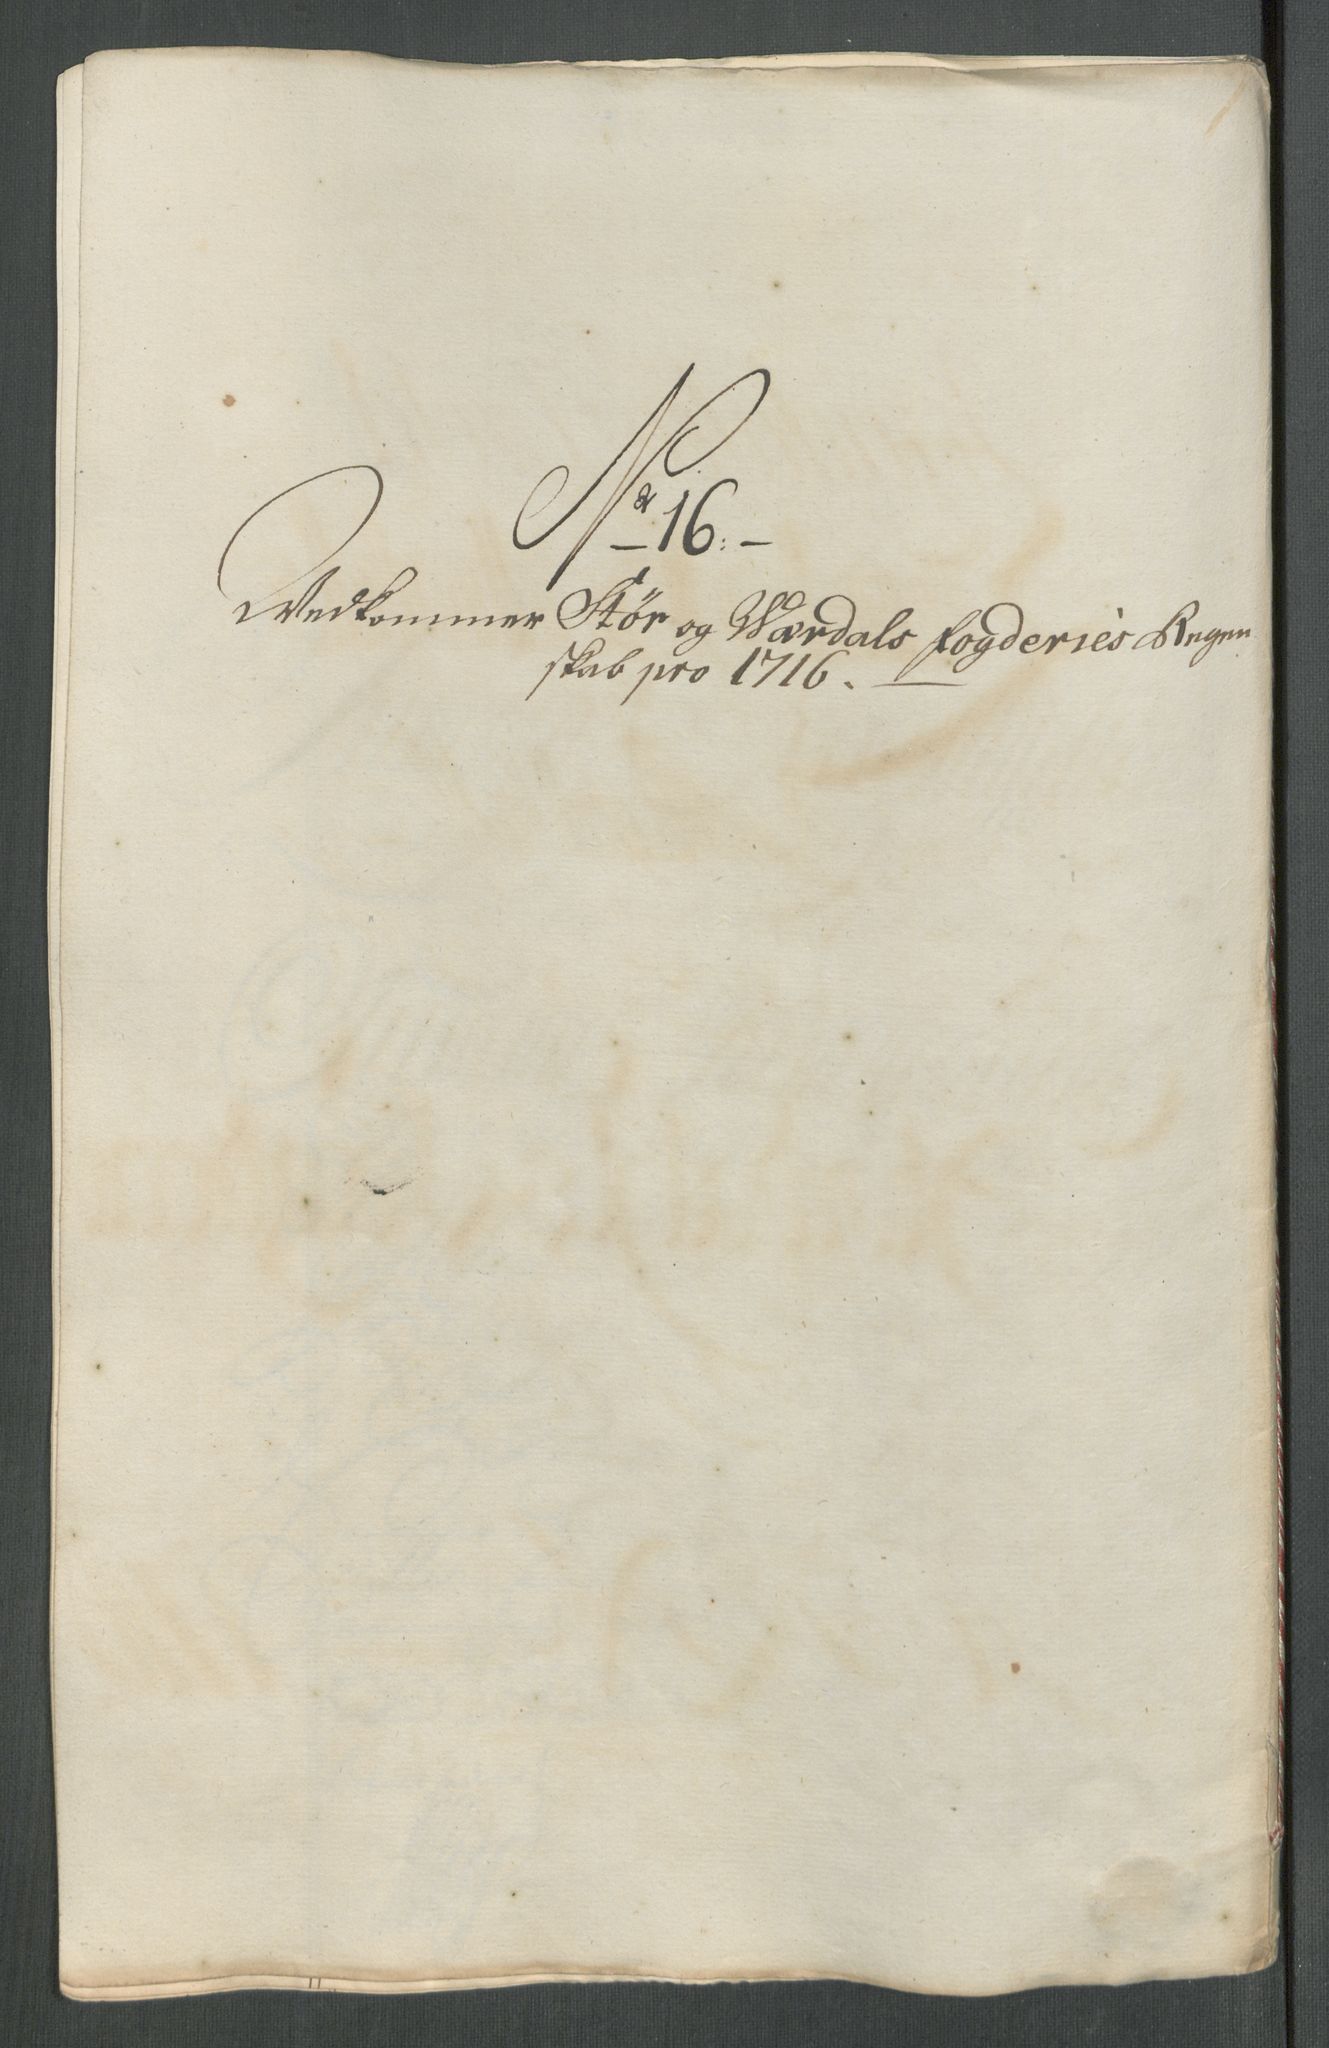 No 16:
Vedkommer Stør og Værdals fogderies Regen
skab pro 1716.